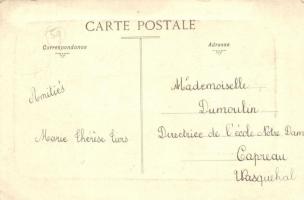 CARTE POSTALE
Correspondance
Adresse
Amitiés
Marie Thérèse Turs
Mademoiselle
Dumoulin
Directrice de l'école Notre Dam
Capreau
Wasquehal